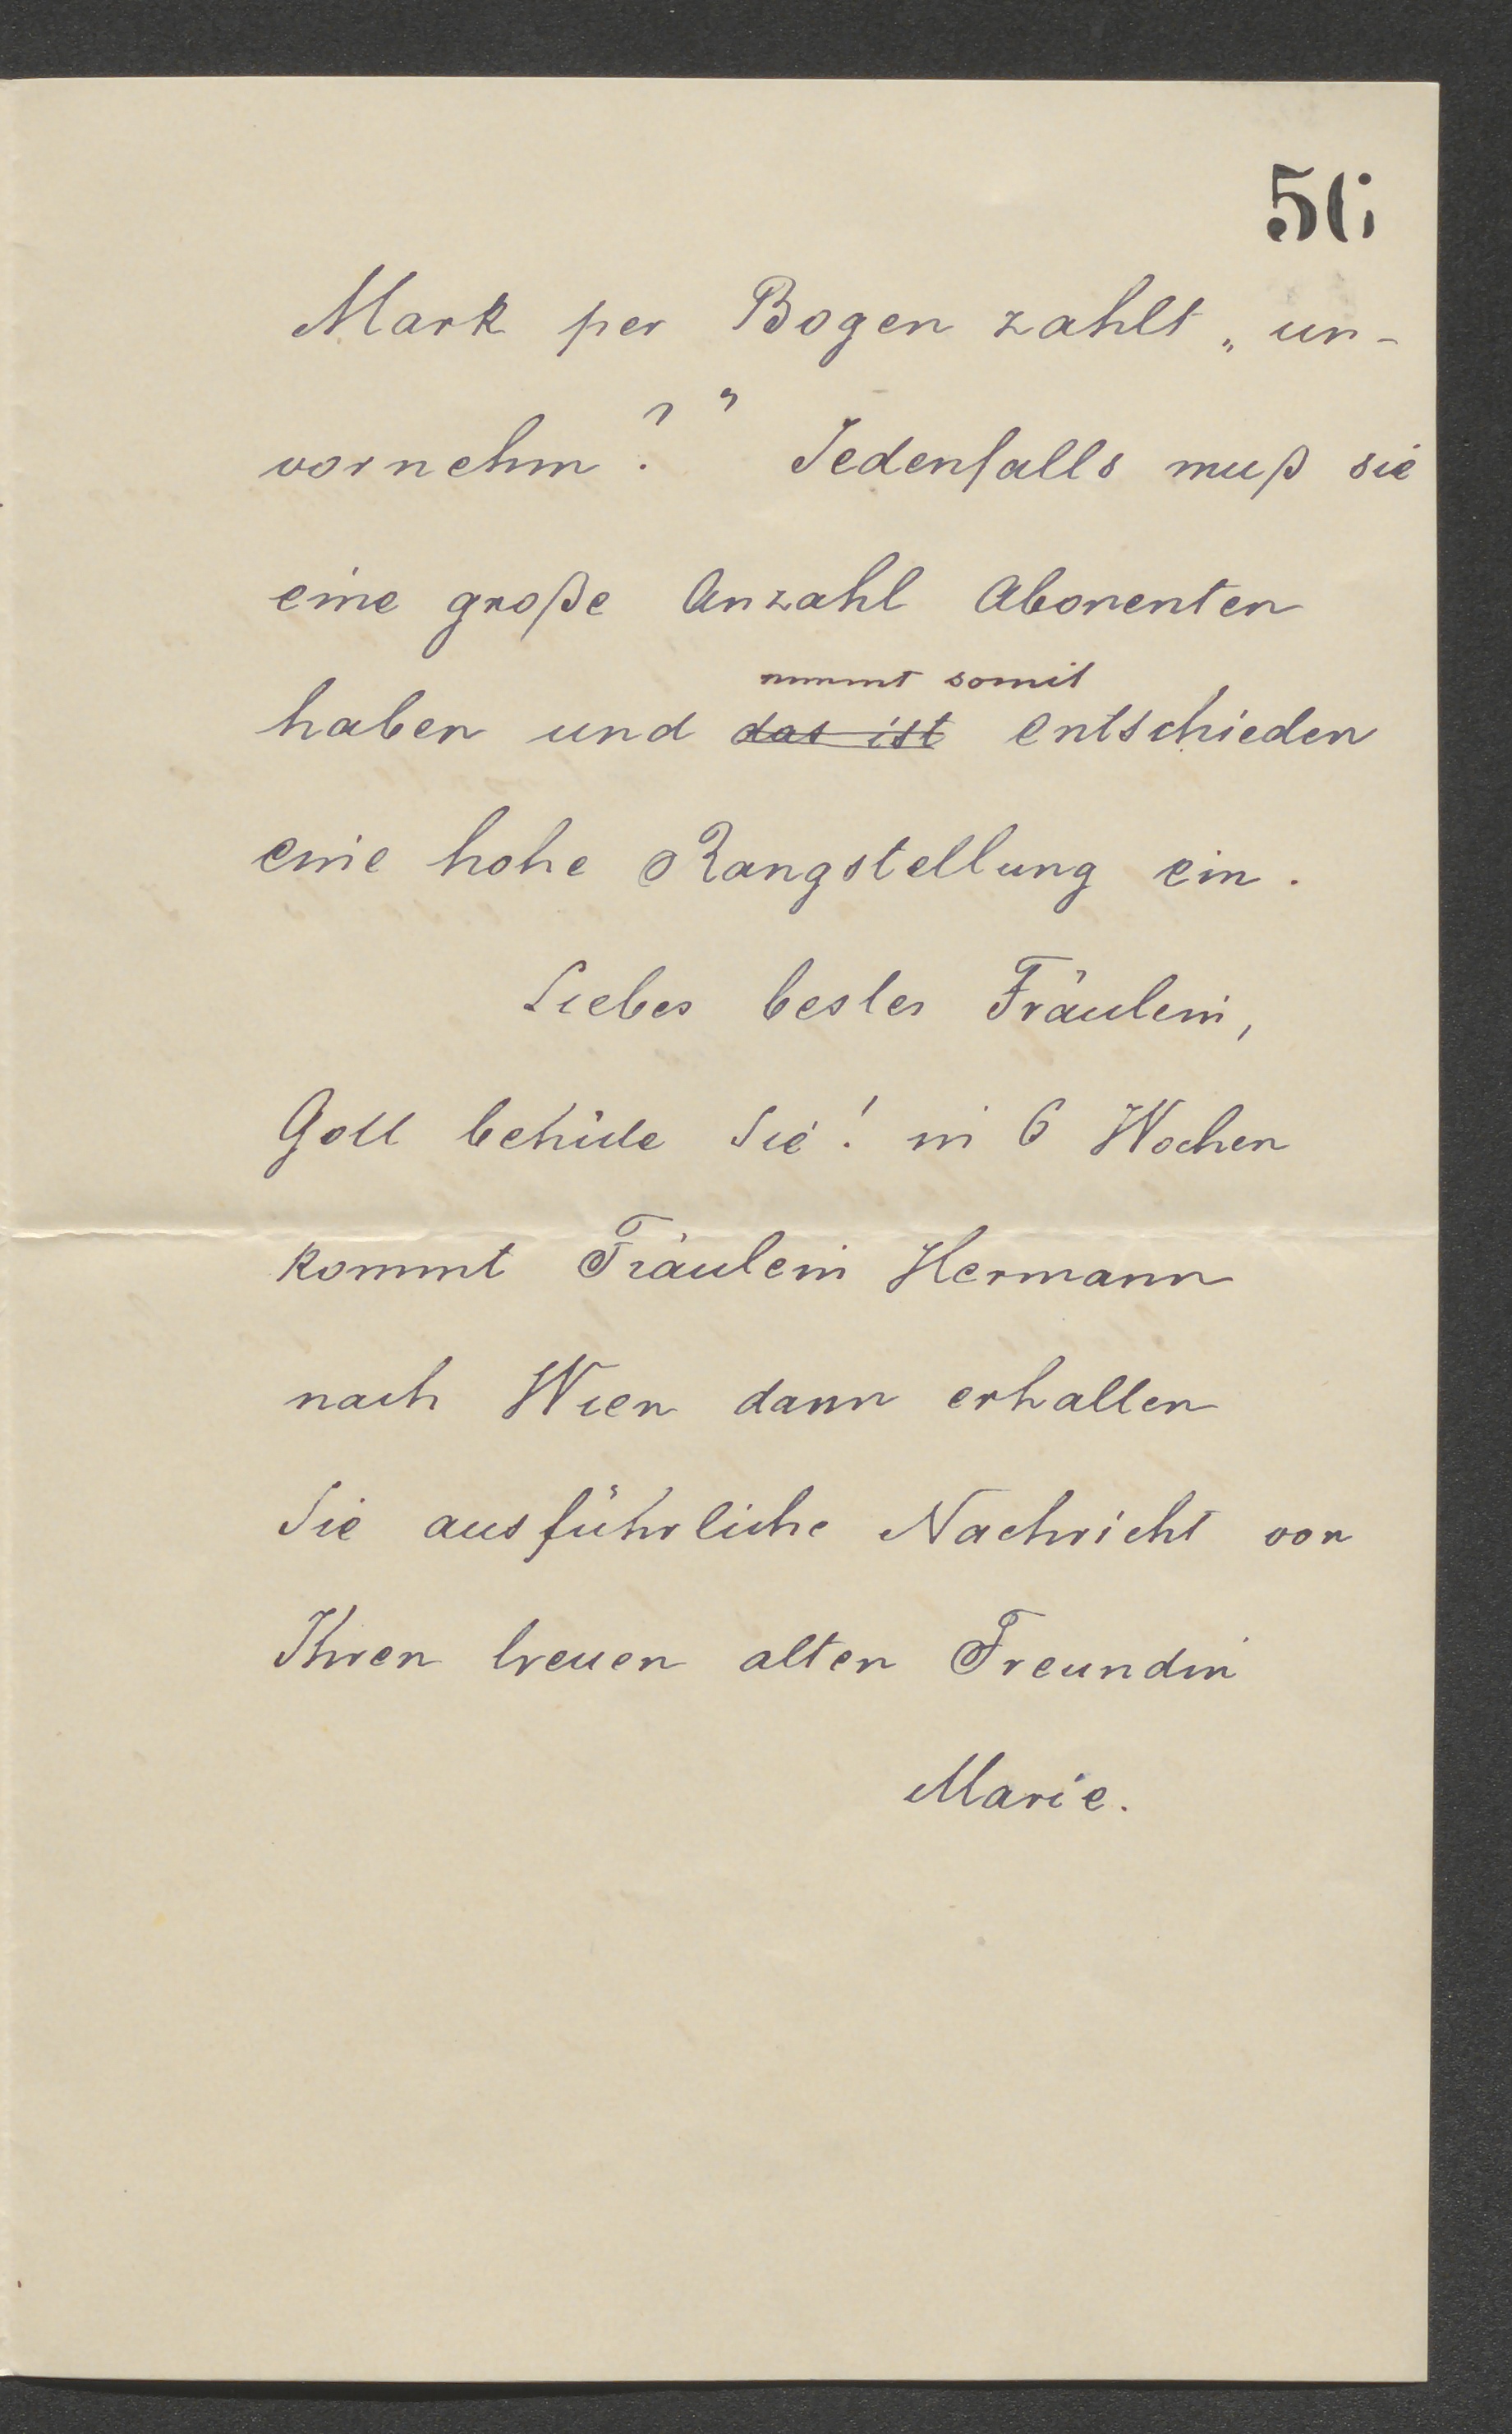 56
Mark per Bogen zahlt „un-
vornehm?“ Jedenfalls muß sie
eine große Anzahl Abonenten
nimmt somit
haben und das ist entschieden
eine hohe Rangstellung ein.
Liebes bestes Fräulein,
Gott behüte Sie! in 6 Wochen
kommt Fräulein Hermann
nach Wien dann erhalten
Sie ausführliche Nachricht von
Ihren treuen alten Freundin
Marie.